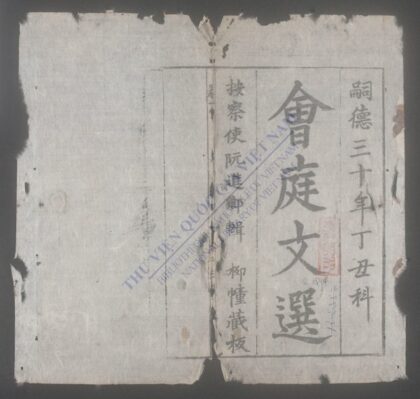 嗣德三十年丁丑科
會庭文選
按察使阮輯 柳幢藏板
THƯ VIỆN QUỐC GIA VIỆT NAM